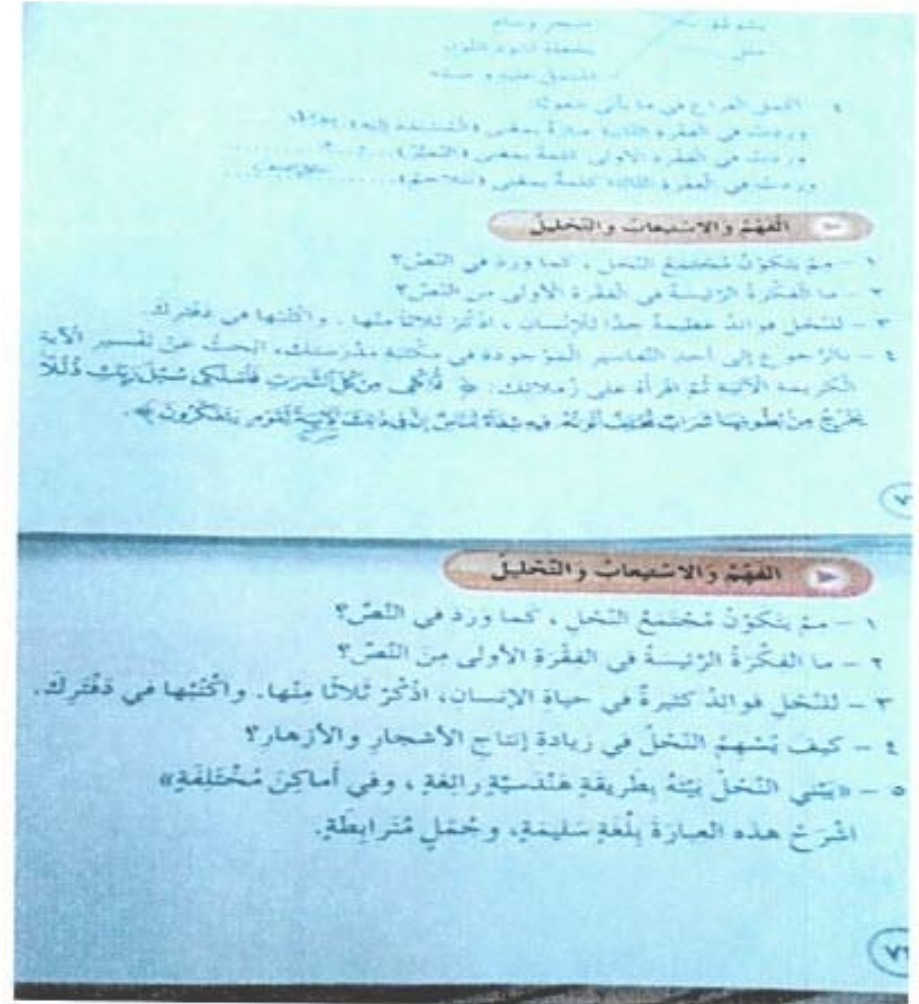 منظر وسام
٤ - أكمل الفراغ في ما يأتي شفويًّا:
وردت في الفقرة الثانية عبارةٌ بمعنى
وردت في الفقرة الأولى كلمةٌ بمعنى
وردت في الفقرة الثالثة كلمةٌ بمعنى (تلاحم)
الْفَهْمُ وَالاسْتيعابُ والتَّحْليلُ
١ - مِمَّ يَتَكَوَّنُ مُجْتَمَعُ النَّحْلِ، كَما وَرَدَ في النَّصِّ؟
٢ - ما الْفِكْرَةُ الرَّئيسَةُ في الْفِقْرَةِ الأولى مِنَ النَّصِّ؟
٣ - لِلنَّحْلِ فَوائِدُ عَظيمَةٌ جِدًّا لِلْإنْسانِ، اذْكُرْ ثَلاثًا مِنْها. واكْتُبْها في دَفْتَرِكَ.
٤ - بالرُّجوعِ إلى أحدِ التَّفاسيرِ الْمَوْجودةِ في مكْتبةِ مَدْرستِكَ، ابْحثْ عَنْ تفْسيرِ الْآيةِ
الْكَريمةِ الْآتيةِ ثمَّ اقْرأْهُ على زُملائِكَ: ﴿ فَٱسْلُكِى سُبُلَ رَبِّكِ ذُلُلًا
يَخْرُجُ مِنۢ بُطُونِهَا شَرَابٌ مُّخْتَلِفٌ أَلْوَٰنُهُۥ فِيهِ شِفَآءٌ لِّلنَّاسِ إِنَّ فِى ذَٰلِكَ لَءَايَةً لِّقَوْمٍ يَتَفَكَّرُونَ ﴾.
الْفَهْمُ وَالاسْتيعابُ والتَّحْليلُ
١ - مِمَّ يَتَكَوَّنُ مُجْتَمَعُ النَّحْلِ، كَما وَرَدَ في النَّصِّ؟
٢ - ما الفِكْرَةُ الرَّئيسَةُ في الفِقْرَةِ الأولى مِنَ النَّصِّ؟
٣ - لِلنَّحْلِ فَوائِدُ كَثيرةٌ في حياةِ الإنسان، اذْكُرْ ثَلاثًا مِنْها. واكْتُبْها في دَفْتَرِكَ.
٤ - كيفَ يُسْهِمُ النَّحْلُ في زيادةِ إنتاجِ الأشجارِ والأزهارِ؟
٥ - «يَبْني النَّحْلُ بَيْتَهُ بِطَريقةٍ هَنْدَسيَّةٍ رائِعَةٍ، وفي أَماكِنَ مُخْتَلِفَةٍ»
اشْرَحْ هذه العِبارَةَ بِلُغَةٍ سَليمَةٍ، وجُمَلٍ مُتَرابِطَةٍ.